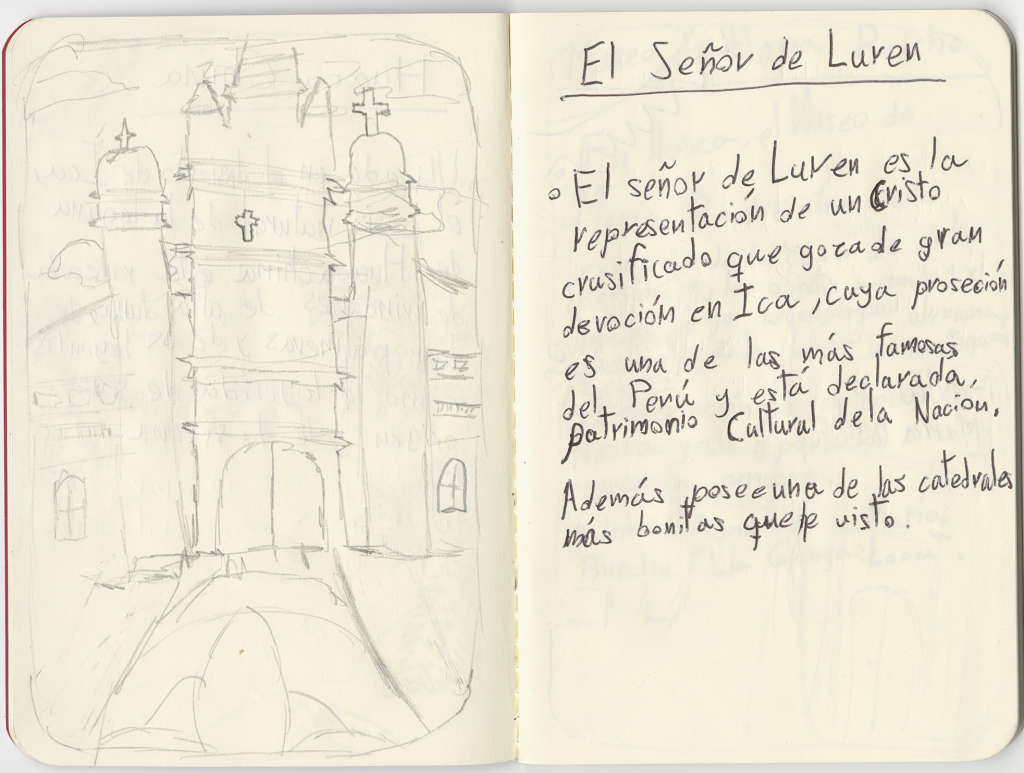 El Señor de Luren
El señor de Luren es la
representación de un Cristo
crusificado que goza de gran
devoción en Ica, cuya proseción
es una de las más famosas
del Perú y está declarada,
patrimonio Cultural de la Nación.
Además posee una de las catedrales
más bonitas que e visto.